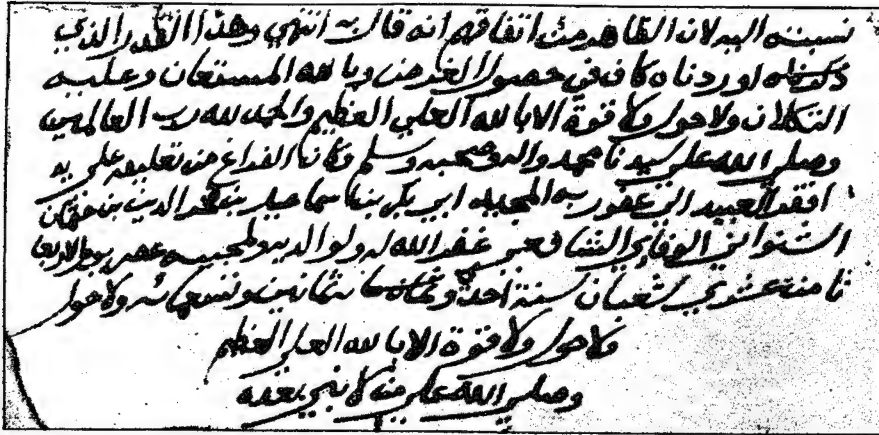 نسبته اليه لان الظاهر من اتفاقهم انه قال به انتهي وهذا القدر الذي
لو ردناه كاف في حصول الغرض وبالله المستعان وعليه
التكلان ولا حول ولا قوة الا بالله العلي العظيم والحمد لله رب العالمين
وصلي الله علي سيدنا محمد واله وصحبه وسلم وكان الفراغ من تعليقه علي يد
افقر العبيد الي عفو ربه المجيد ابي بكر بن اسماعيل بن شهاب الدين بن
الشنواني الوفاي الشافعي غفر الله له ولوالديه ولمحبيه عصر يوم الاربعا
ثامن عشري شعبان سنة احدي وثمانين وتسعمائه ولا حول
ولا حول ولا قوة الا بالله العلي العظيم
وصلي الله علي من لا نبي بعده